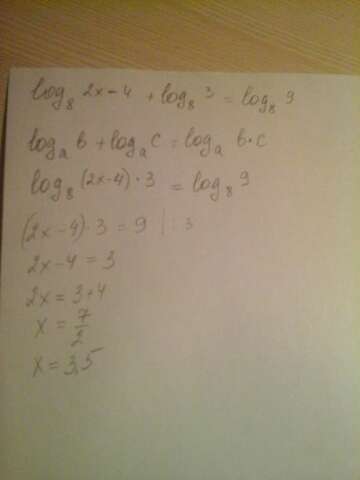 log₈ 2x-4 + log₈ 3 = log₈ 9
logₐ b + logₐ c = logₐ b·c
log₈ (2x-4)·3 = log₈ 9
(2x-4)·3 = 9 | : 3
2x-4 = 3
2x = 3+4
x = 7/2
x = 3,5